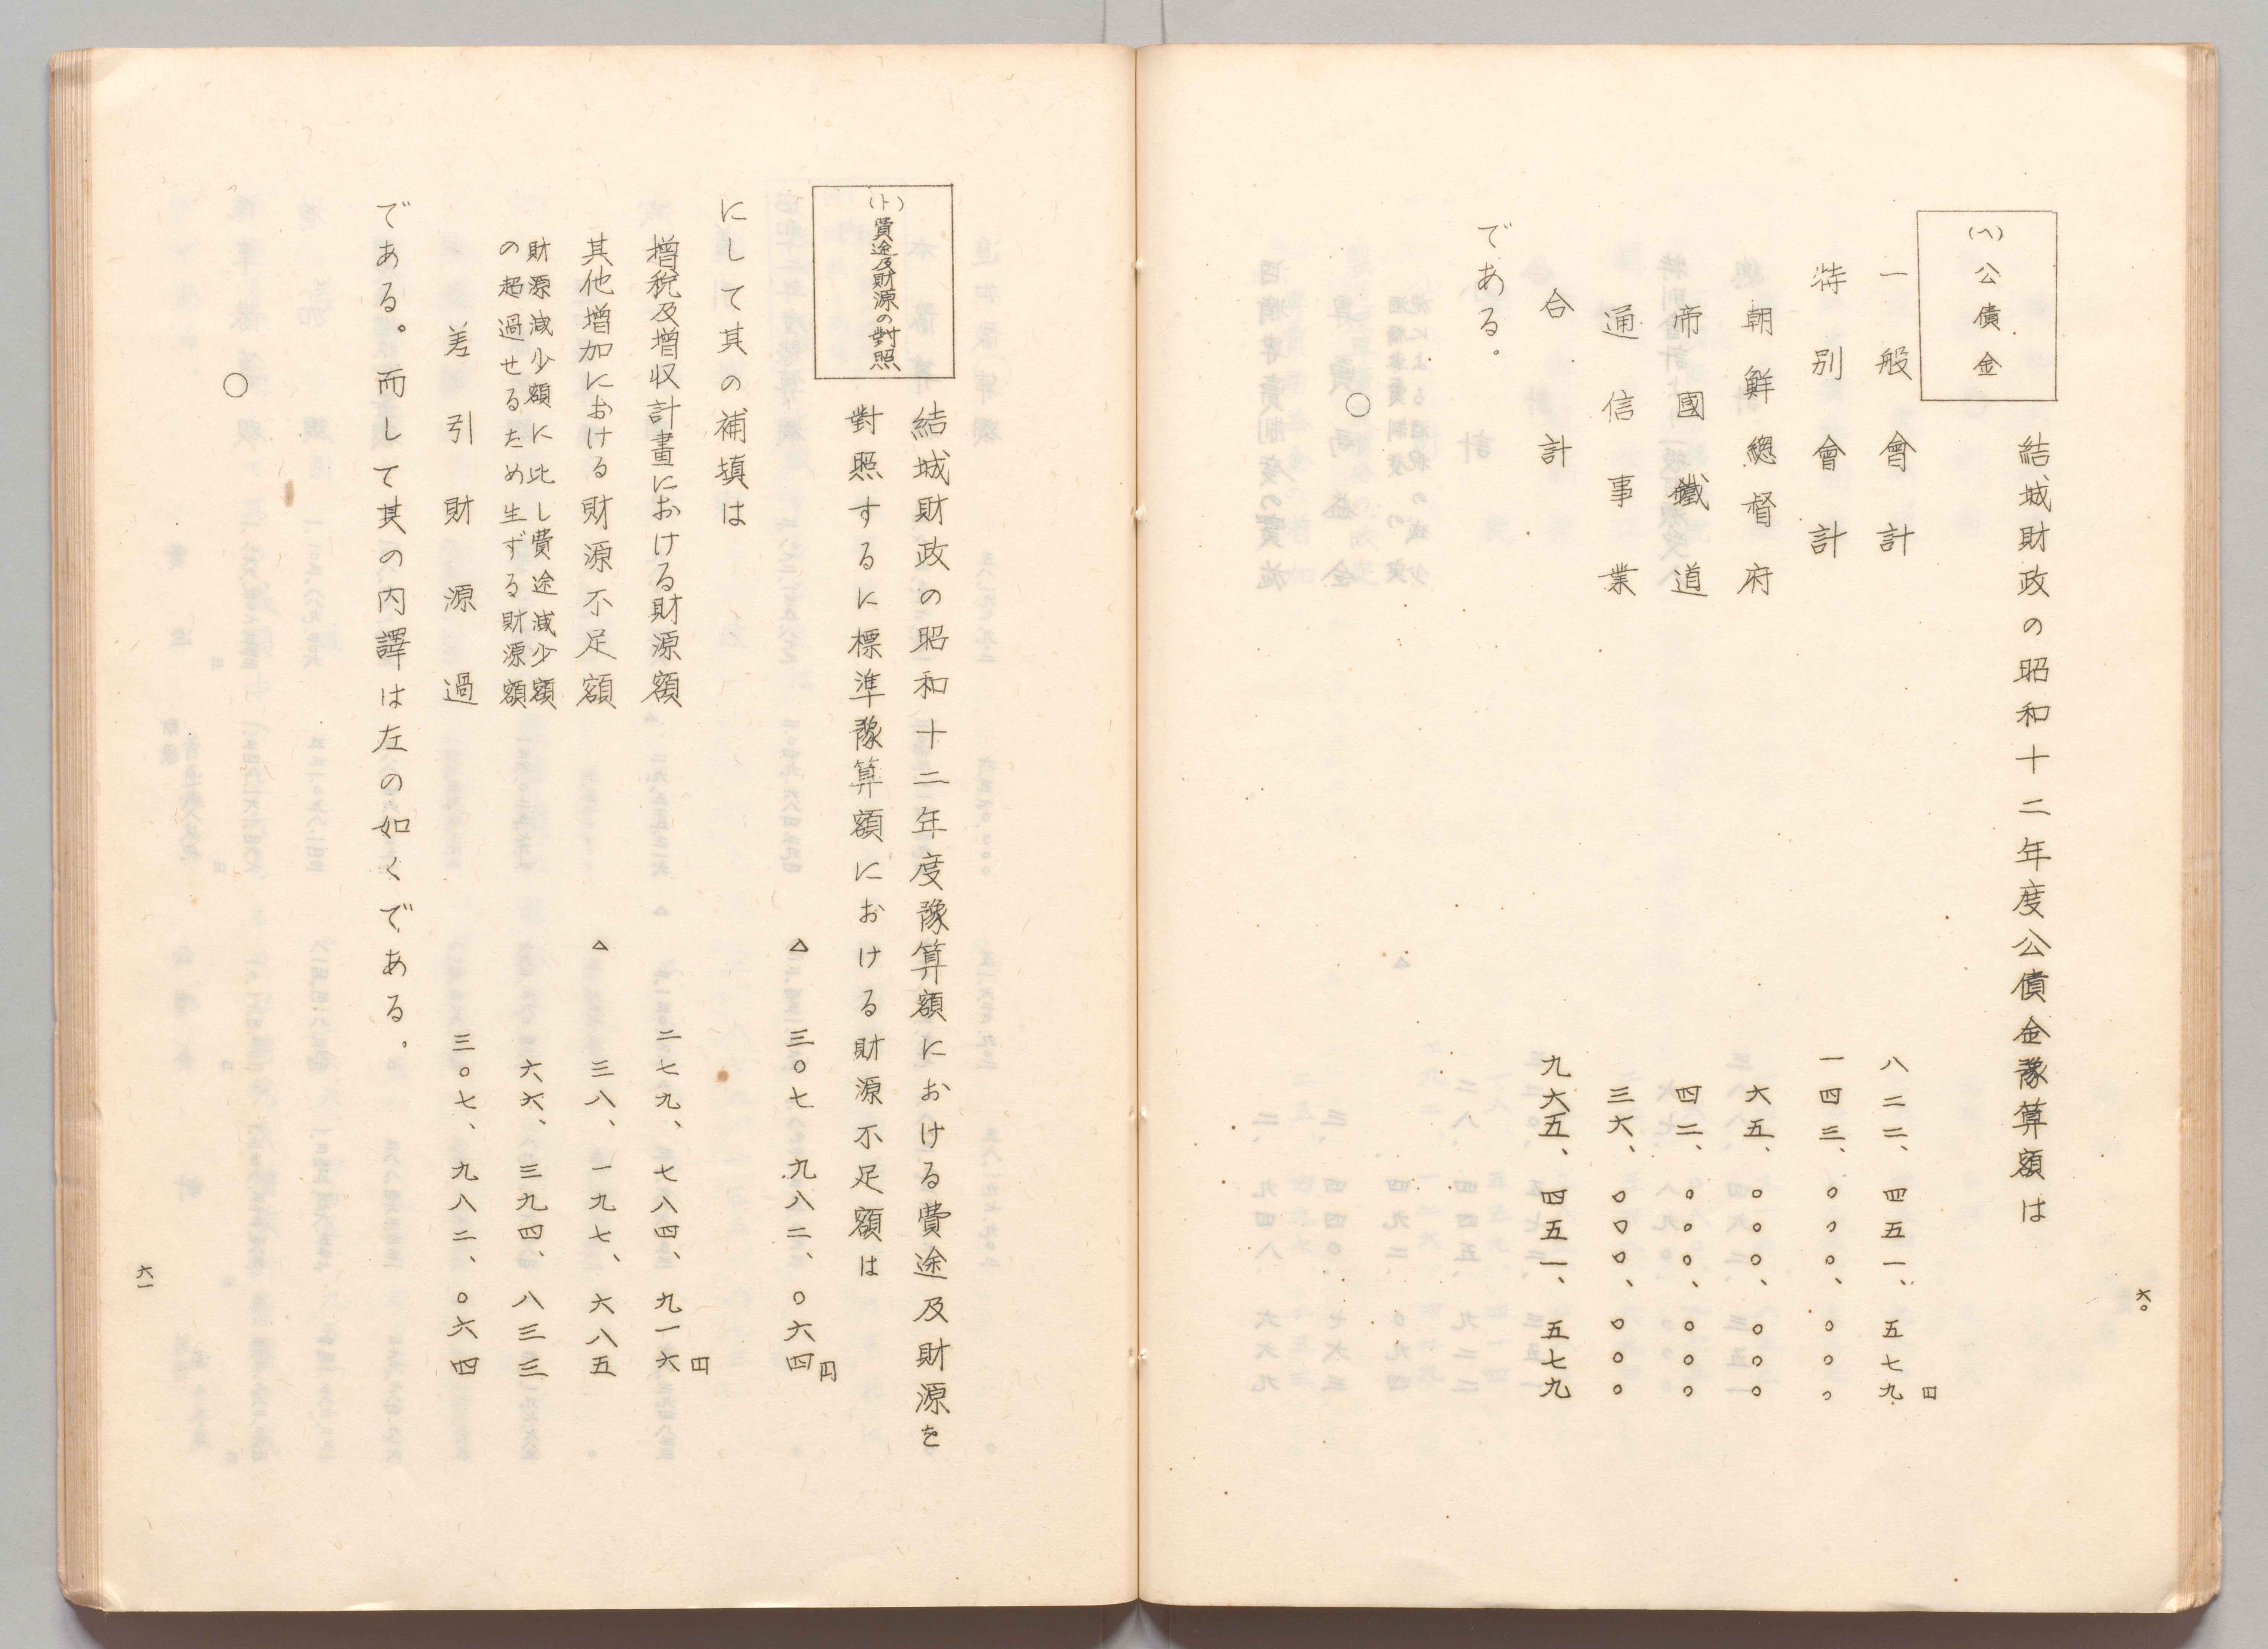 (ヘ) 公債金
結城財政の昭和十二年度公債金豫算額は
一般會計 八二二、四五一、五七九円
特別會計 一四三、〇〇〇、〇〇〇
朝鮮總督府 六五、〇〇〇、〇〇〇
帝國鐵道 四二、〇〇〇、〇〇〇
通信事業 三六、〇〇〇、〇〇〇
合計 九六五、四五一、五七九
である。
〇
六〇
(ト) 費途及財源の對照
結城財政の昭和十二年度豫算額における費途及財源を
對照するに標準豫算額における財源不足額は
△三〇七、九八二、〇六四円
にして其の補填は
增稅及增収計畫における財源額 二七九、七八四、九一六円
其他增加における財源不足額 △三八、一九七、六八五
財源減少額に比し費途減少額
の超過せるため生ずる財源額 六六、三九四、八三三
差引財源過 三〇七、九八二、〇六四
である。而して其の内譯は左の如くである。
〇
六一